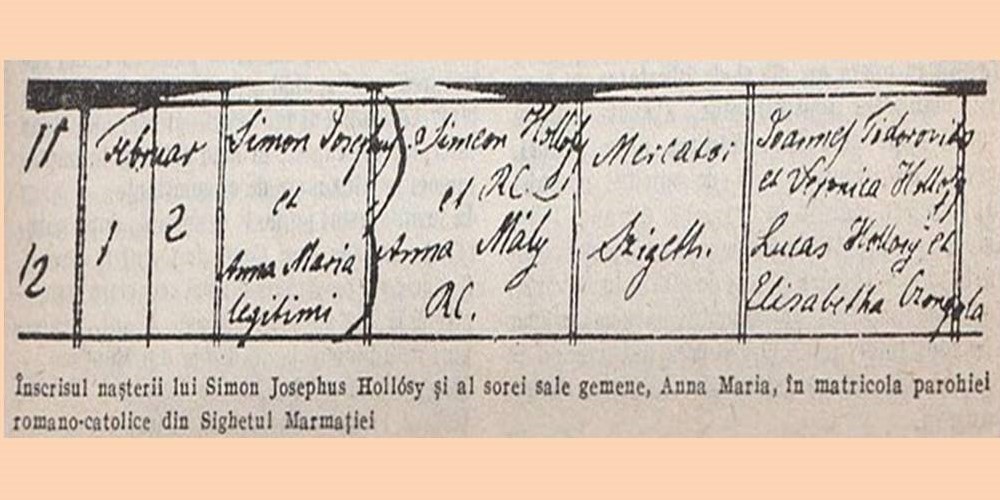 11 Februar Simon Josephus Simeon Hollósy Mercator Joannes Todorovits
et et R.C. et Veronica Hollósy
12 1 2 Anna Maria Anna Mály Szigeth. Lucas Hollósy et
legitimi R.C. Elisabetha
Înscrisul nașterii lui Simon Josephus Hollósy și al sorei sale gemene, Anna Maria, în matricola parohiei
romano-catolice din Sighetul Marmației